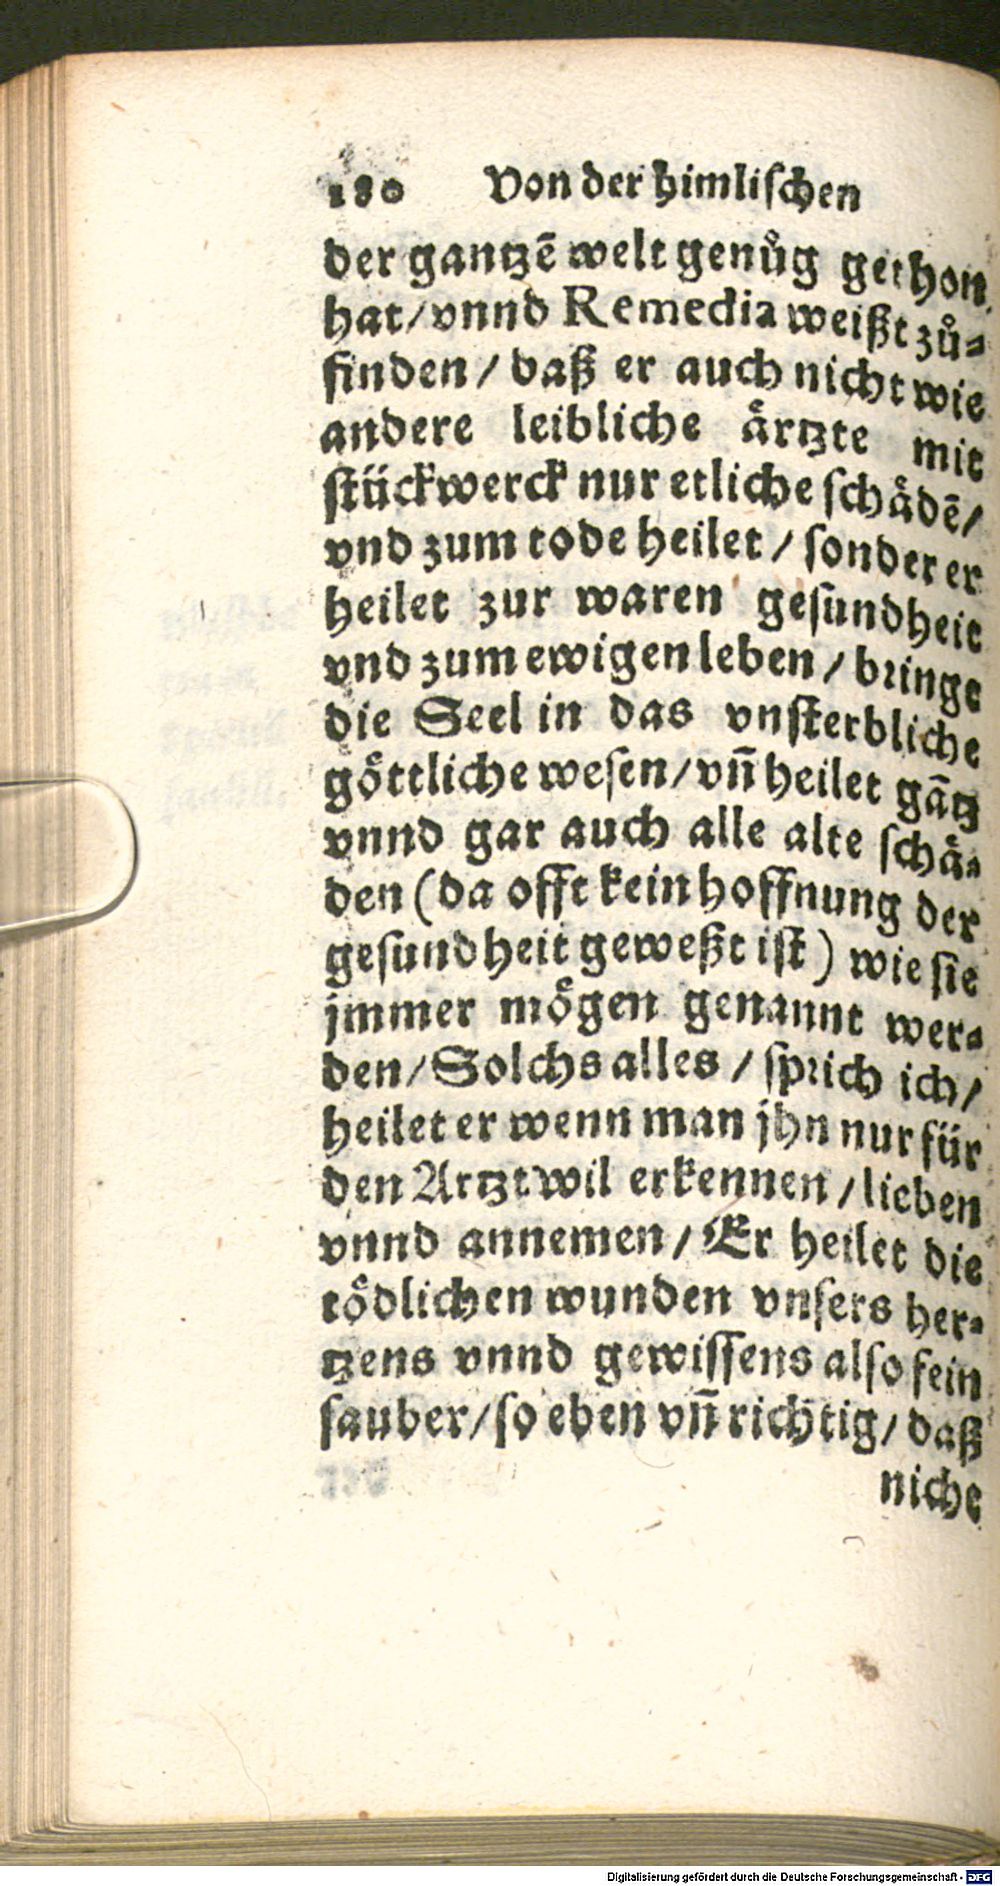 180 Von der himlischen
der gantzē welt genůg gethon
hat/vnnd Remedia weißt zů-
finden/daß er auch nicht wie
andere leibliche aͤrtzte mit
stückwerck nur etliche schaͤdē/
vnd zum tode heilet/sonder er
heilet zur waren gesundheit
vnd zum ewigen leben/bringt
die Seel in das vnsterbliche
goͤttliche wesen/vn̄ heilet gātz
vnnd gar auch alle alte schaͤ-
den (da offt kein hoffnung der
gesundheit geweßt ist) wie sie
jmmer moͤgen genannt wer-
den/Solchs alles/sprich ich/
heilet er wenn man jhn nur für
den Artzt wil erkennen/lieben
vnnd annemen/Er heilet die
toͤdlichen wunden vnsers her-
tzens vnnd gewissens also fein
sauber/so eben vn̄ richtig/daß
nicht
Digitalisierung gefördert durch die Deutsche Forschungsgemeinschaft - DFG